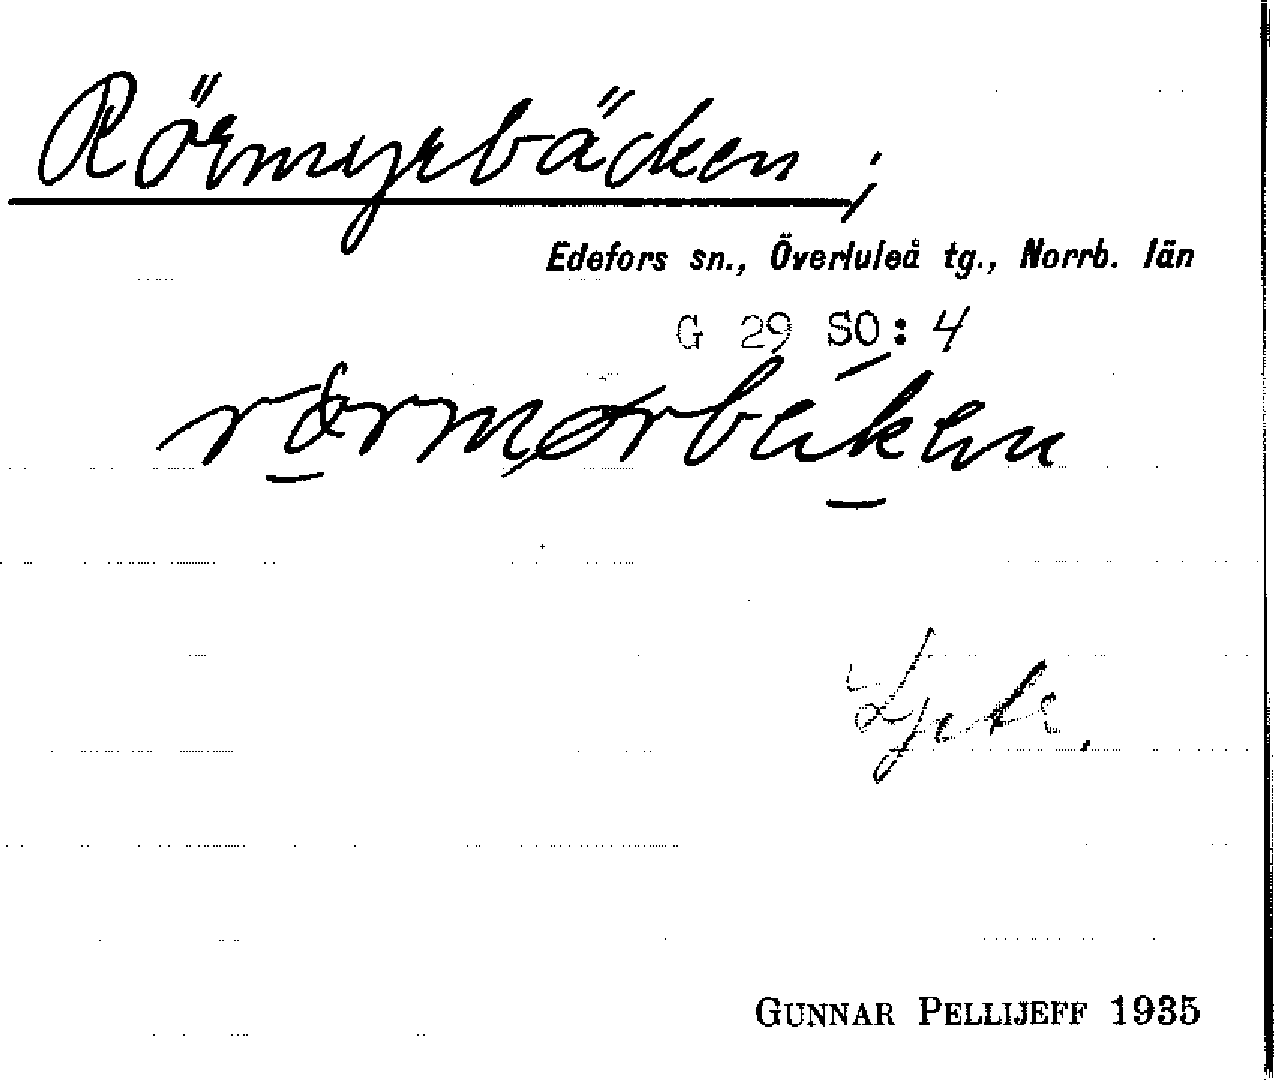 Rörmyrbäcken;
Edefors sn., Överluleå tg., Norrb. län
G 29 SO: 4
GUNNAR PELLIJEFF 1935